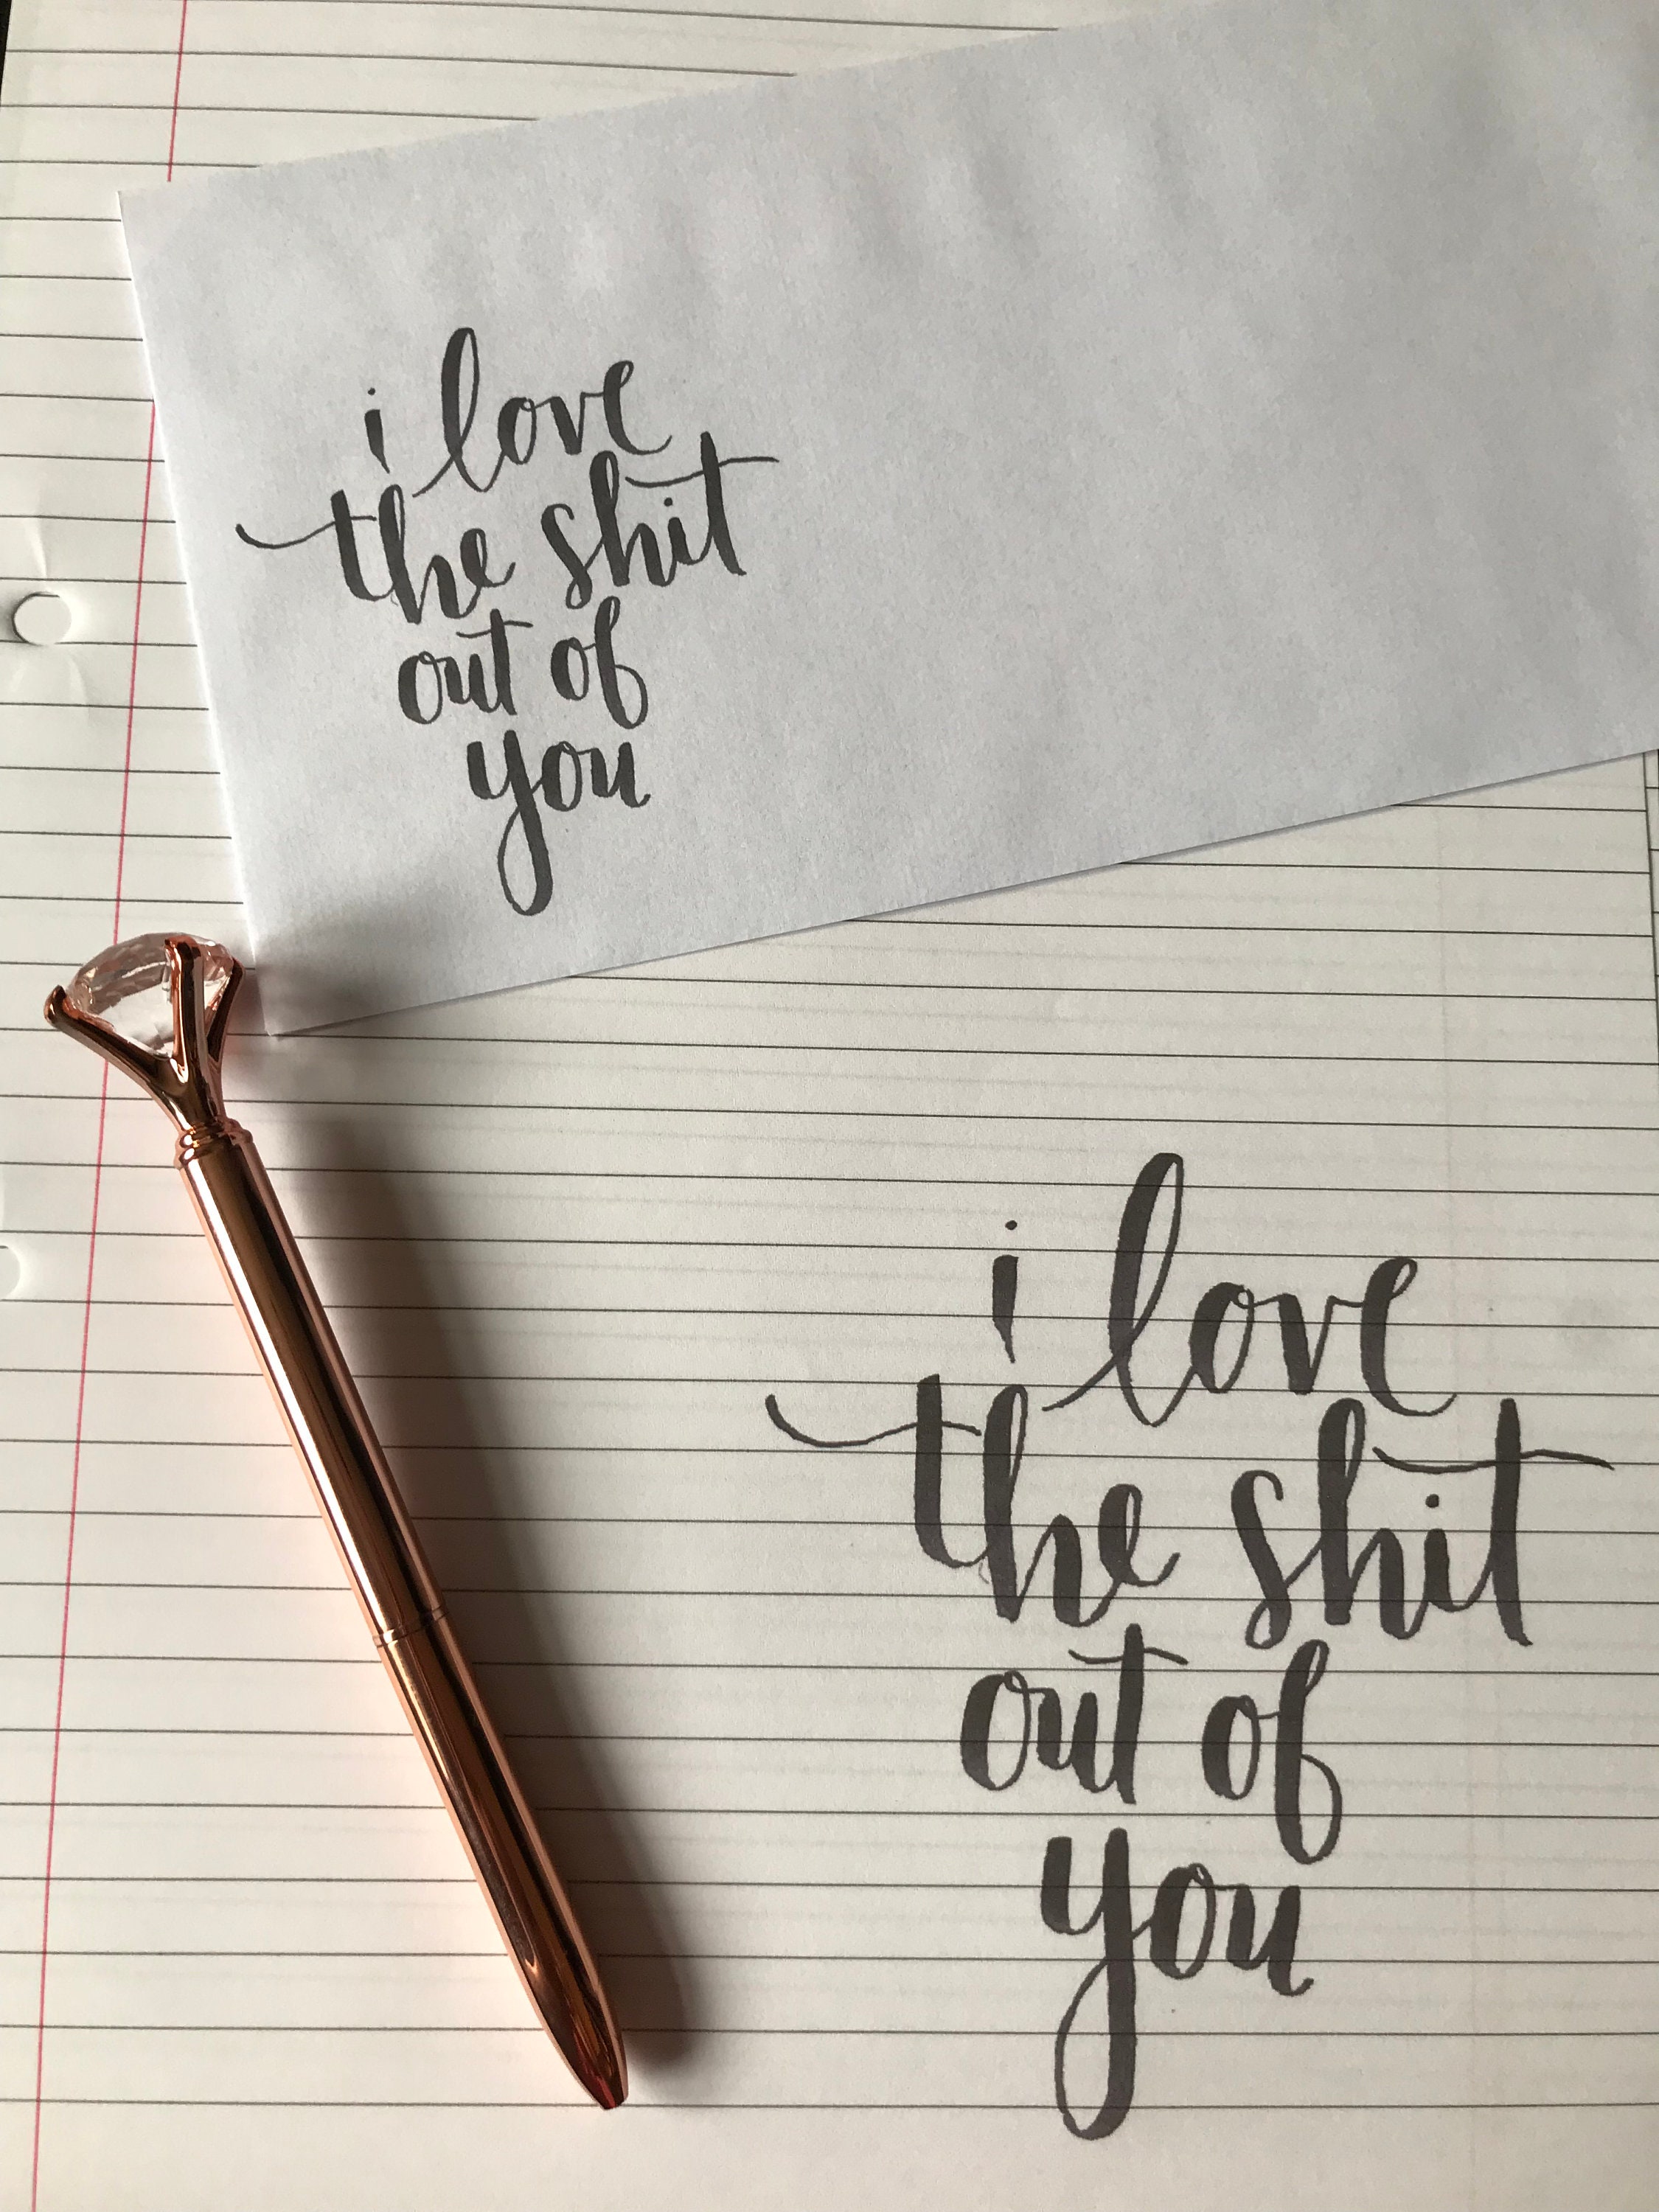 i love
the shit
out of
you
i love
the shit
out of
you